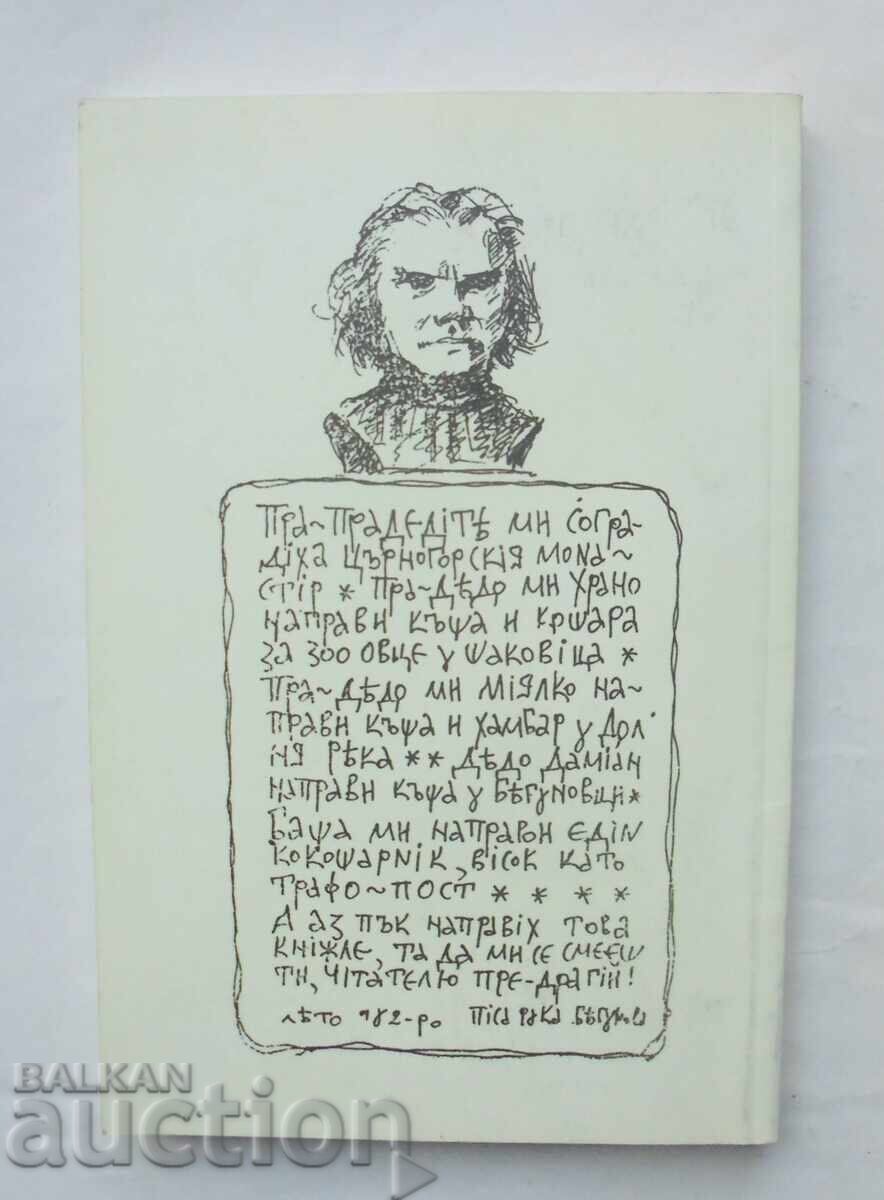 ПРА~ПРАДЕДІТѢ МИ СОГРА-
ДІХА ЦЪРНОГОРСКІЯ МОNА~
СТІР * ПРА~ДѢДО МИ ХРАНО
НАПРАВИ КѪЩА И КОШАРА
ЗА 300 ОВЦЕ У ШАКОВІЦА *
ПРА~ДѢДО МИ МІЯЛКО НА~
ПРАВИ КЪЩА И ХАМБАР У ДОЛ-
НЯ РѢКА ** ДѢДО ДАМІАН
НАПРАВИ КЪЩА У БѢГУНОВЦИ *
БАЩА МИ НАПРАВИ ЄДІN
КОКОШАРНІК, ВІСОК КАТО
ТРАФО~ПОСТ * * * *
А АЗ ПЪК НАПРАВІХ ТОВА
КНІЖЛЕ, ТА ДА МИ СЕ СМЕЄШ
ТИ, ЧІТАТЕЛЮ ПРЕ-ДРАГІЙ!
ЛѢТО 982-РО ПІСА РѪКА
BALKAN
auction